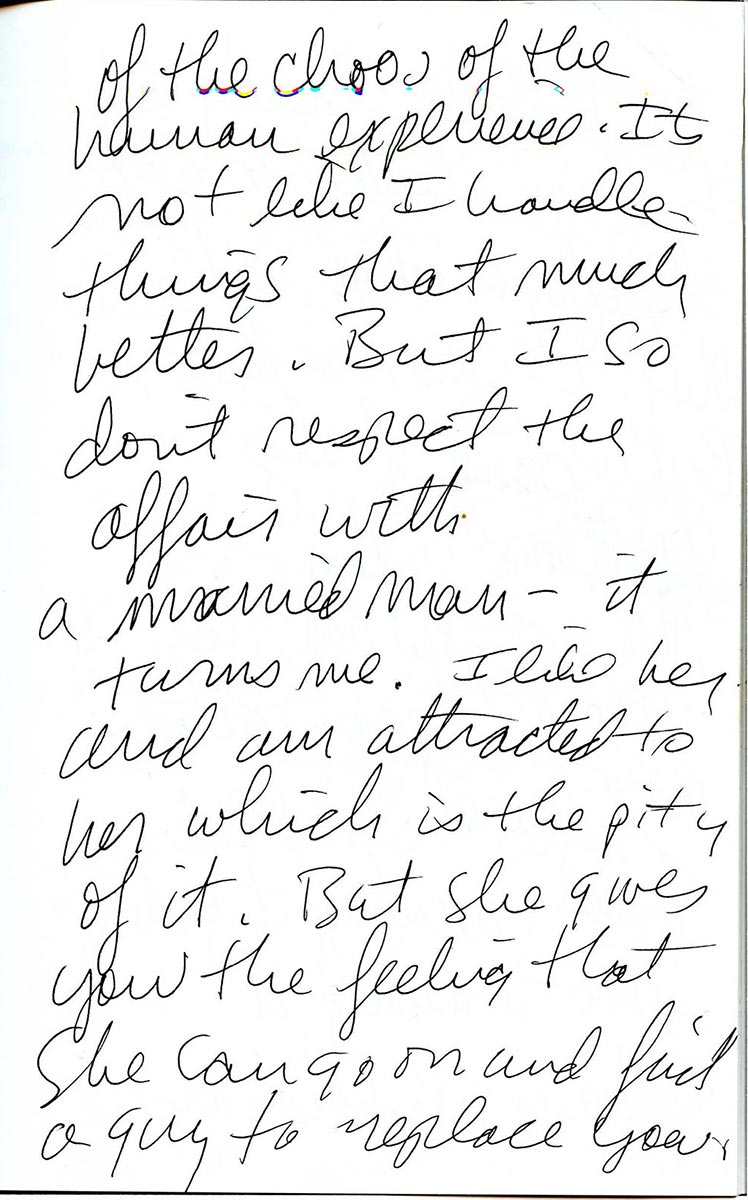 of the chaos of the
human experience. Its
not like I handle
things that much
better. But I so
don't respect the
affair with
a married man - it
turns me. I like her
and am attracted to
her which is the pity
of it. But she gives
you the feeling that
she can go on and find
a guy to replace you